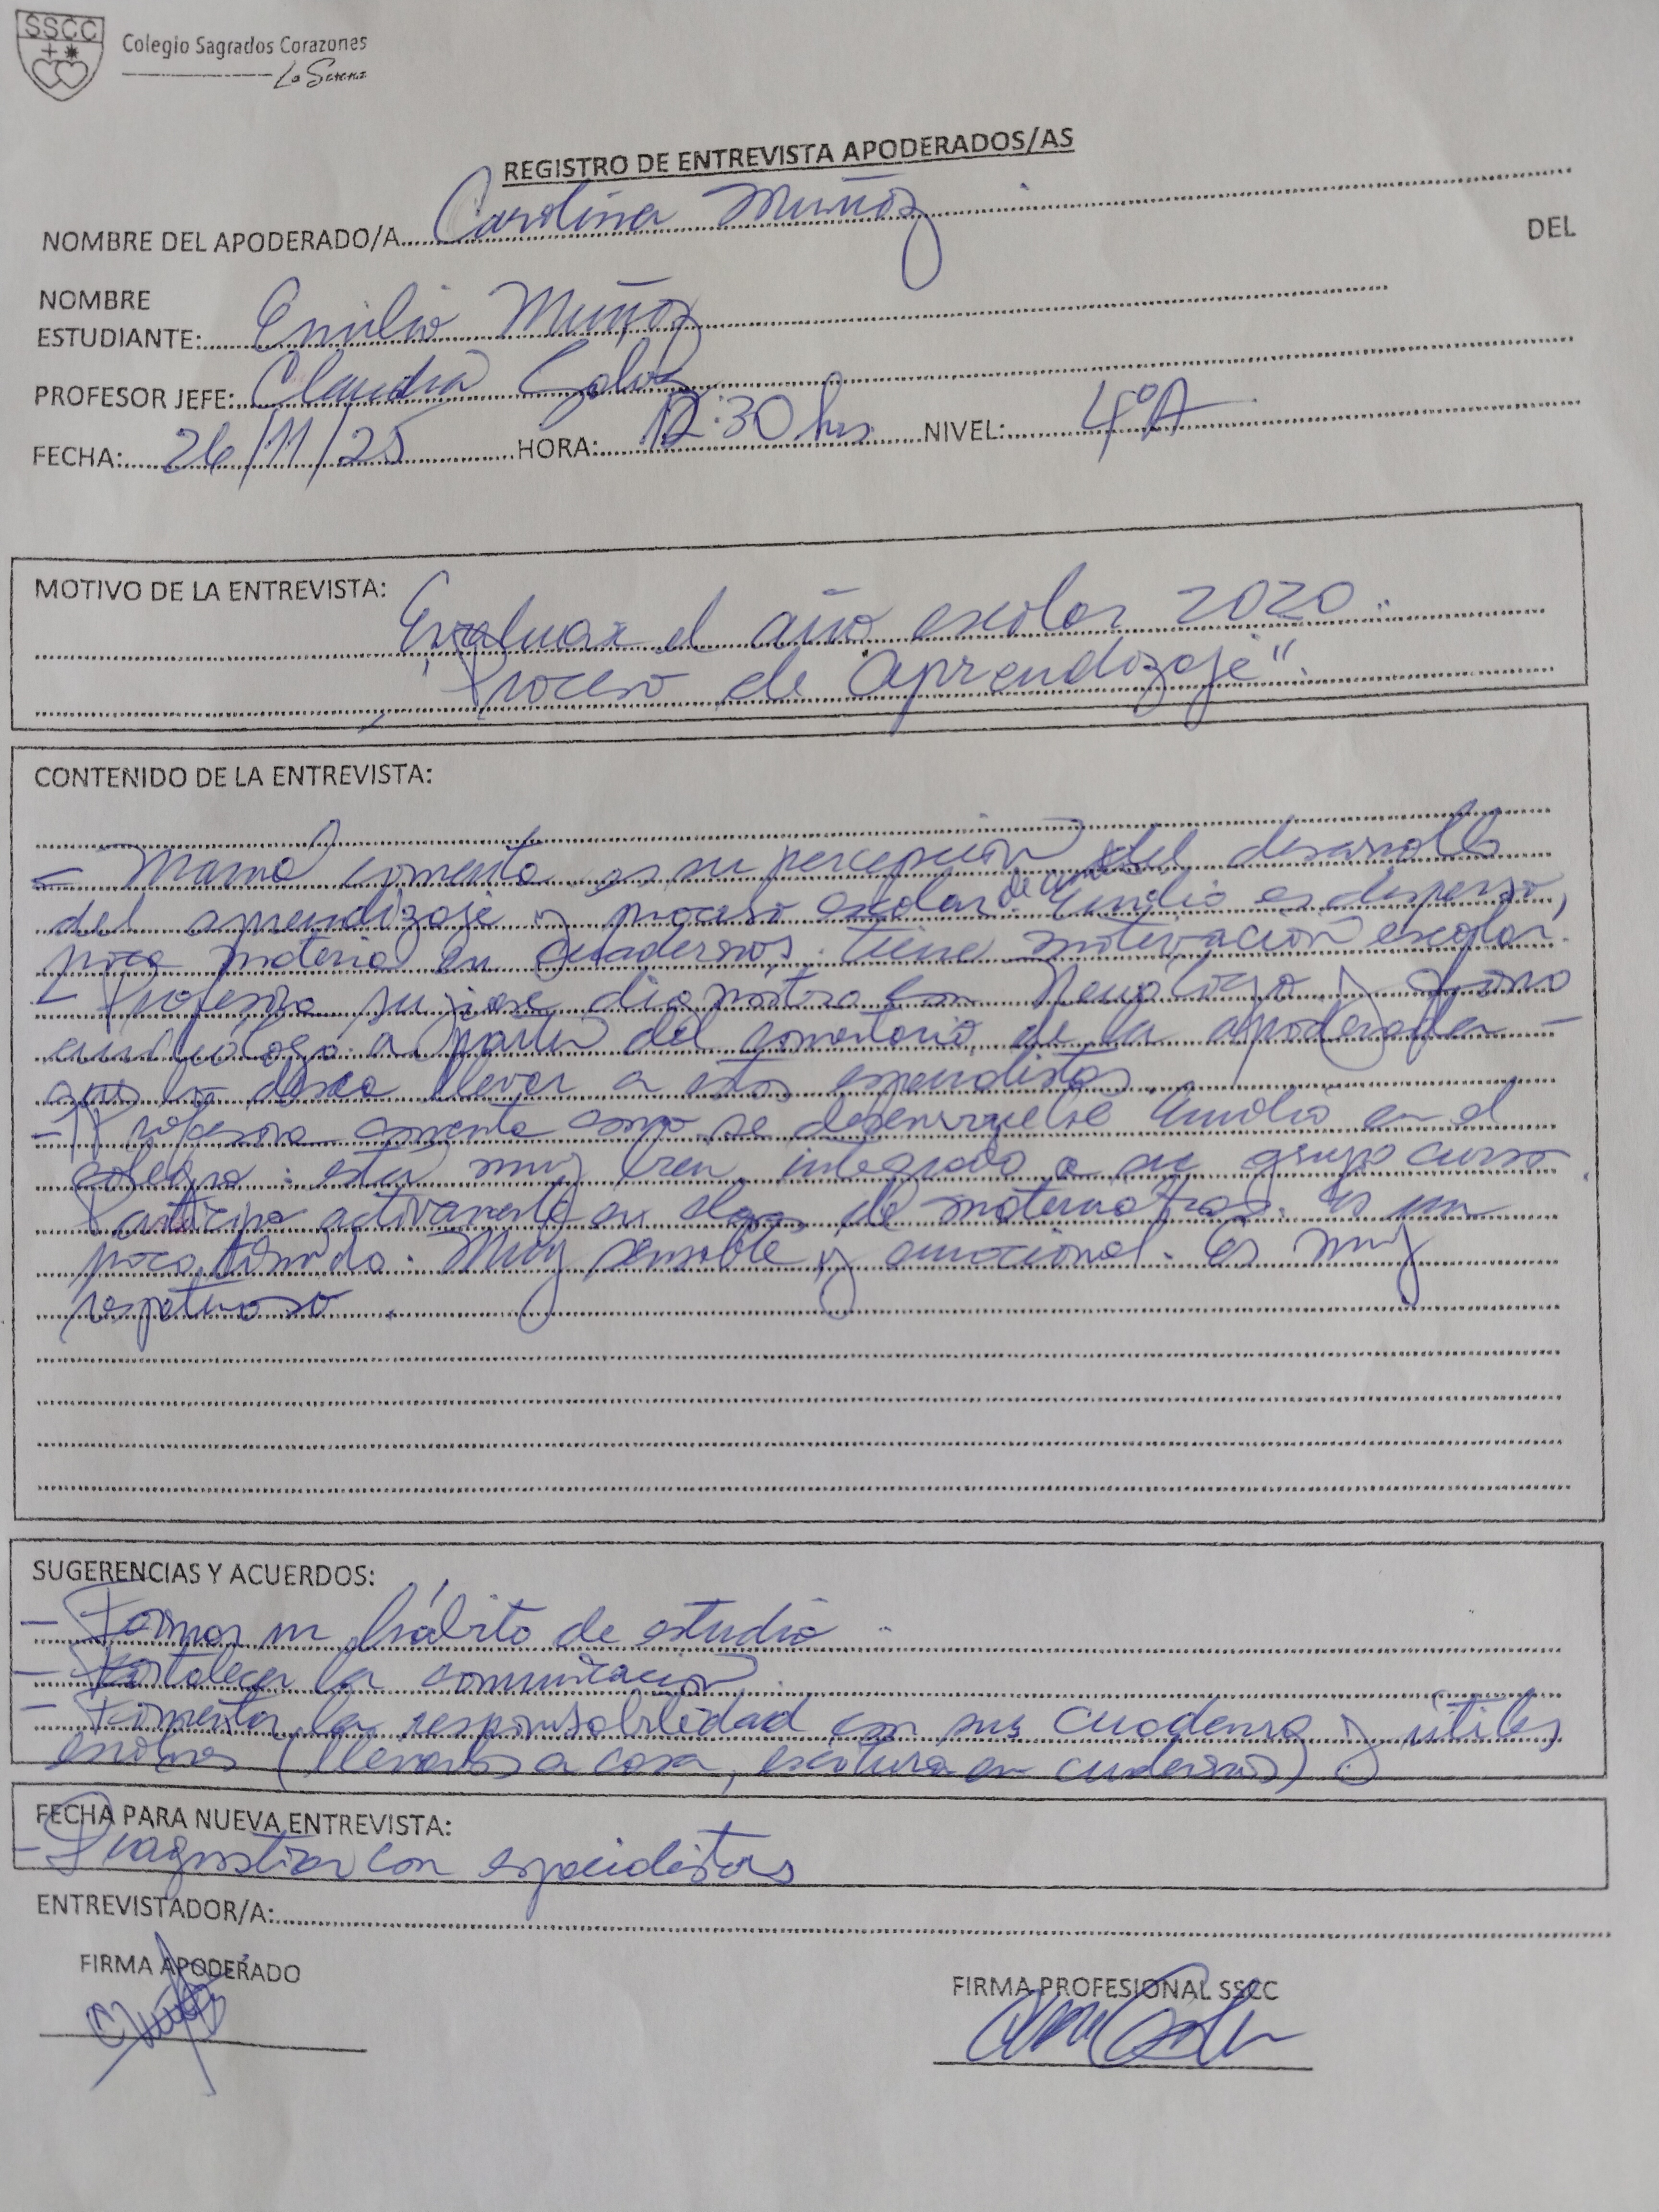 SSCC
Colegio Sagrados Corazones
La Serena
REGISTRO DE ENTREVISTA APODERADOS/AS
NOMBRE DEL APODERADO/A Carolina Muñoz
DEL
NOMBRE
ESTUDIANTE: Emilio Muñoz
PROFESOR JEFE: Claudia
FECHA: 26/11/25 HORA: 12:30 hrs NIVEL: 4°A
MOTIVO DE LA ENTREVISTA:
Evaluar el año escolar 2020.
"Proceso de aprendizaje".
CONTENIDO DE LA ENTREVISTA:
- Mamá comenta su percepción del desarrollo
del aprendizaje y proceso escolar. Emilio es disperso,
poca materia en cuadernos. tiene motivación escolar.
- Profesora sugiere
a partir del comentario de la apoderada
lo desea llevar a estos especialistas
- Profesora comenta como se desenvuelve Emilio en el
colegio: está muy bien integrado a su grupo curso.
Participa activamente en de matemáticas. Es un
poco tímido. Muy sensible y emocional. Es muy
respetuoso.
SUGERENCIAS Y ACUERDOS:
- Formar un hábito de estudio.
- Fortalecer la comunicación.
- Fomentar la responsabilidad con sus cuadernos y útiles
escolares (llevarlos a casa, escritura en cuadernos)
FECHA PARA NUEVA ENTREVISTA:
- Diagnosticar con especialistas
ENTREVISTADOR/A:
FIRMA APODERADO
FIRMA PROFESIONAL SSCC